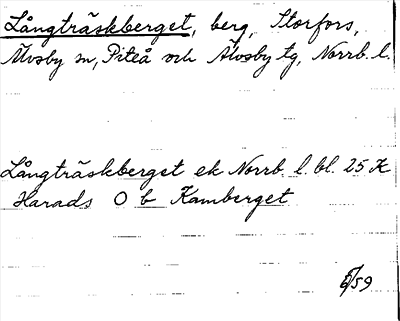 Långträskberget, berg, Storfors,
Älvsby sn, Piteå och Älvsby tg, Norrb. l.
Långträskberget ek Norrb l. bl. 25 K
Harads O b Kamberget
5/59